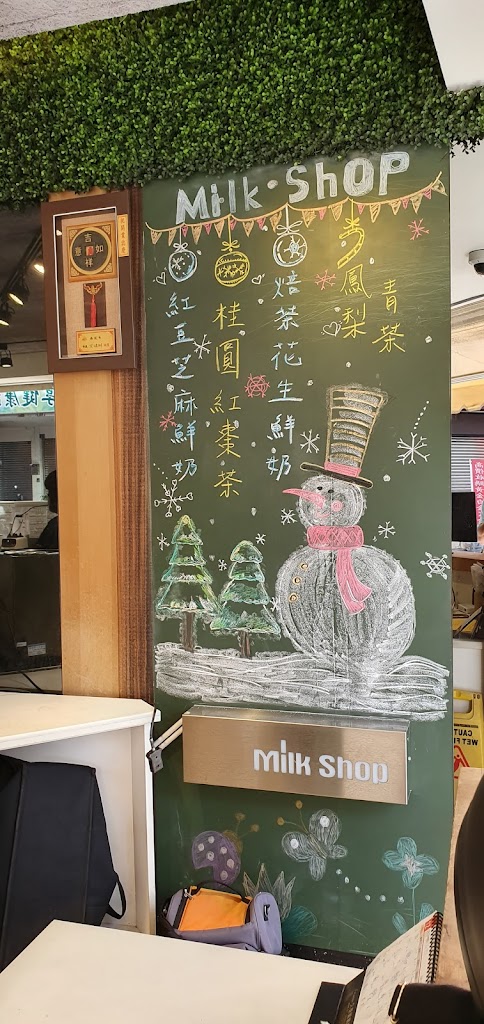 Milk·Shop
鳳梨
青茶
焙茶花生鮮奶
桂圓紅棗茶
紅豆芝麻鮮奶
吉祥如意
Milk Shop
健康
CAUT
WET F